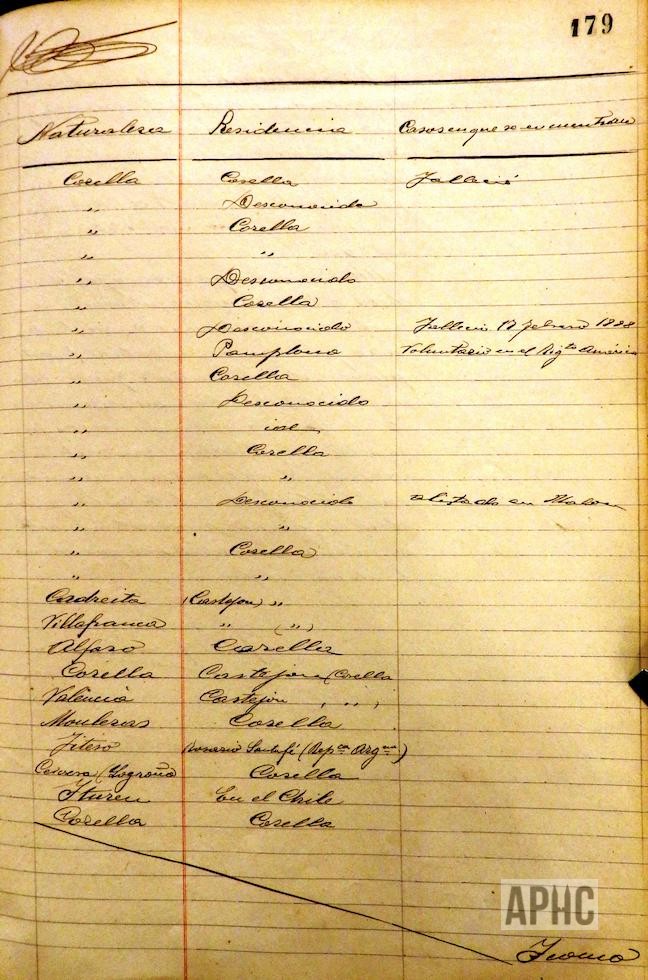 179
Naturaleza Residencia Casos en que se encuentran
Corella Corella Falleció
" Desconocido
" Corella
" "
" Desconocido
" Corella
" Desconocido Falleció 17 febrero 1888
" Pamplona Voluntario en el Rigto América
" Corella
" Desconocido
" id
" Corella
" "
" Desconocido alistado en
" "
" Corella
" "
Cadreita (Castejon) "
Villafranca " (")
Alfaro Corella
Corella Castejon (Corella
Valencia Castejon ( " )
Corella
Fitero Rosario Santafé (Repca Argna)
Cervera (Logroño) Corella
Ituren En el Chile
Corella Corella
APHC